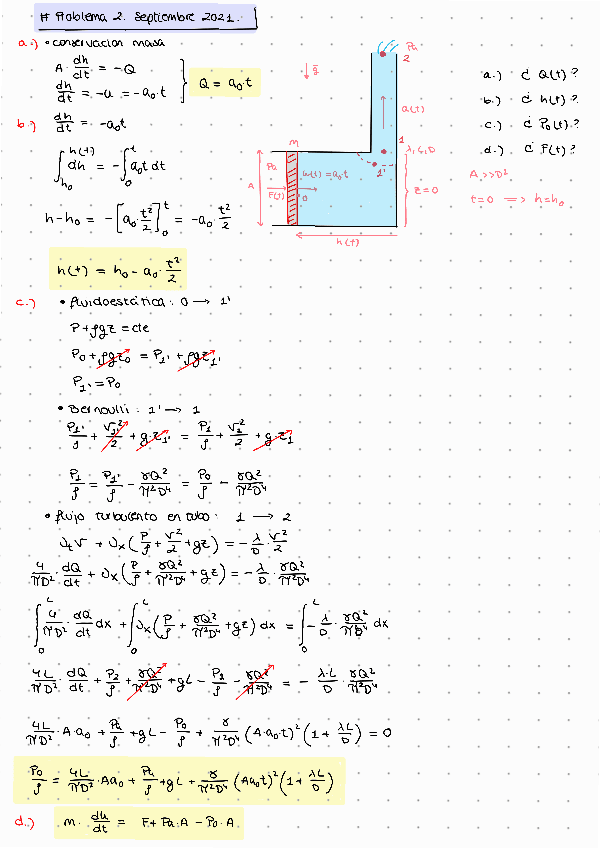 # Problema 2. Septiembre 2021.
a.) • conservación masa
A · dh/dt = -Q
dh/dt = -u = -a₀·t
Q = a₀·t
b.) dh/dt = -a₀t
∫_{h₀}^{h(t)} dh = -∫_0^t a₀t dt
h-h₀ = -[a₀·t²/2]_0^t = -a₀·t²/2
h(t) = h₀ - a₀·t²/2
Pa
2
g
Q(t)
M
1
λ, L, D
1'
Pa
A
F(t)
u(t)=a₀·t
0
z=0
h(t)
a.) ¿ Q(t)?
b.) ¿ h(t)?
c.) ¿ P₀(t)?
d.) ¿ F(t)?
A>>D²
t=0 ⟹ h=h₀
c.) • fluidoestática: 0 → 1'
P+ρgz = cte
P₀+ρgz₀ = P₁' + ρgz₁'
P₁' = P₀
• Bernoulli: 1' → 1
P₁'/ρ + v₁'²/2 + g·z₁' = P₁/ρ + v₁²/2 + g·z₁
P₁/ρ = P₁'/ρ - 8Q²/π²D⁴ = P₀/ρ - 8Q²/π²D⁴
• flujo turbulento en tubo: 1 → 2
∂ₜv + ∂ₓ(P/ρ + v²/2 + gz) = -λ/D · v²/2
4/πD² · dQ/dt + ∂ₓ(P/ρ + 8Q²/π²D⁴ + gz) = -λ/D · 8Q²/π²D⁴
∫_0^L 4/πD² · dQ/dt dx + ∫_0^L ∂ₓ(P/ρ + 8Q²/π²D⁴ + gz) dx = ∫_0^L -λ/D · 8Q²/π²D⁴ dx
4L/πD² · dQ/dt + P₂/ρ + 8Q²/π²D⁴ + gL - P₁/ρ - 8Q²/π²D⁴ = - λ·L/D · 8Q²/π²D⁴
4L/πD² · A·a₀ + Pa/ρ + gL - P₀/ρ + 8/π²D⁴ (A·a₀·t)² (1 + λL/D) = 0
P₀/ρ = 4L/πD² · Aa₀ + Pa/ρ + gL + 8/π²D⁴ (Aa₀t)² (1 + λL/D)
d.) m · du/dt = F + Pa·A - P₀·A.